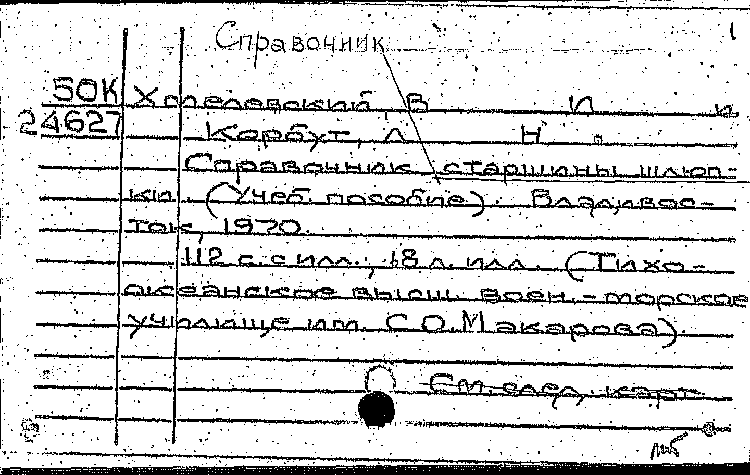 Справочник
50К Хмелевский, В И и
24627 Корбут, Л Н.
Справочник старшины шлюп-
ки. (Учеб. пособие). Владивос-
ток, 1970.
112 с. с илл., 18 л. илл. (Тихо-
океанское высш. воен.-морское
училище им. С.О.Макарова).
См. след. карт